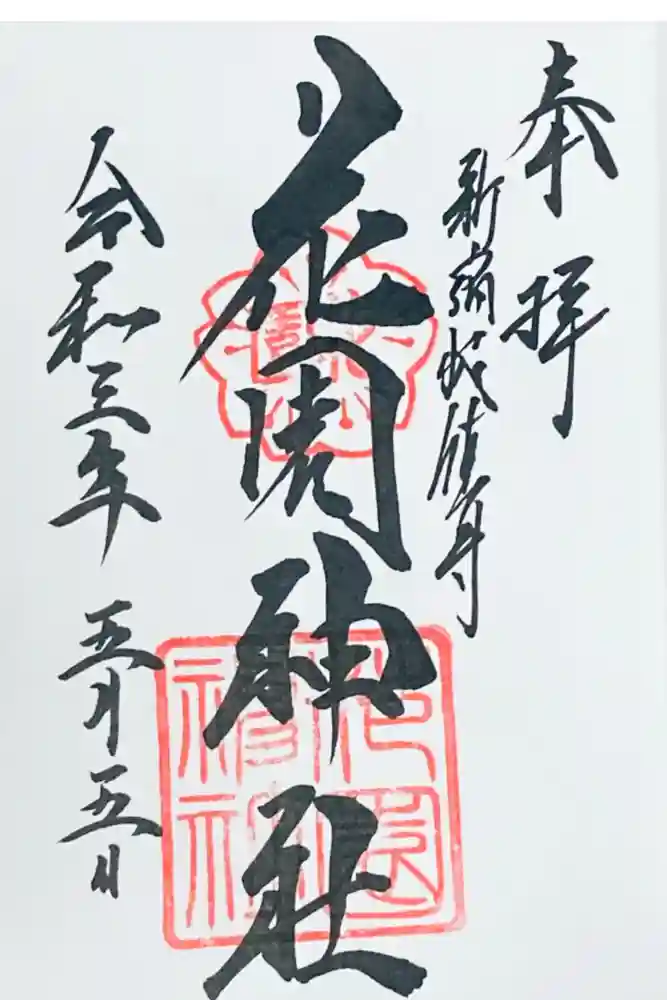 奉拝
新宿総鎮守
花園神社
令和三年 五月五日